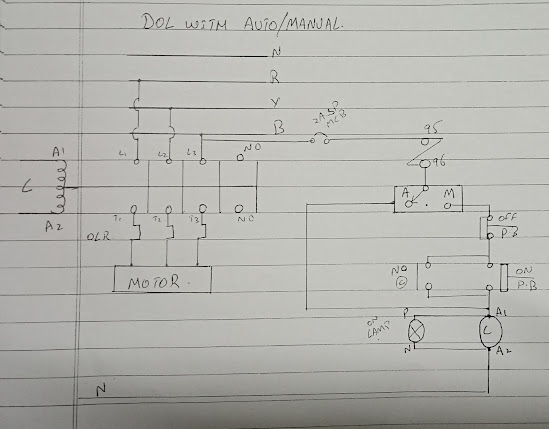 DOL WITH AUTO/MANUAL.
N
R
Y
B
2A SP
MCB
95
96
A1
L1
L2
L3
NO
C
A2
T1
T2
T3
NO
OLR
MOTOR.
A
M
OFF
P.B
NO
C
ON
P.B
P
A1
ON
LAMP
C
N
A2
N